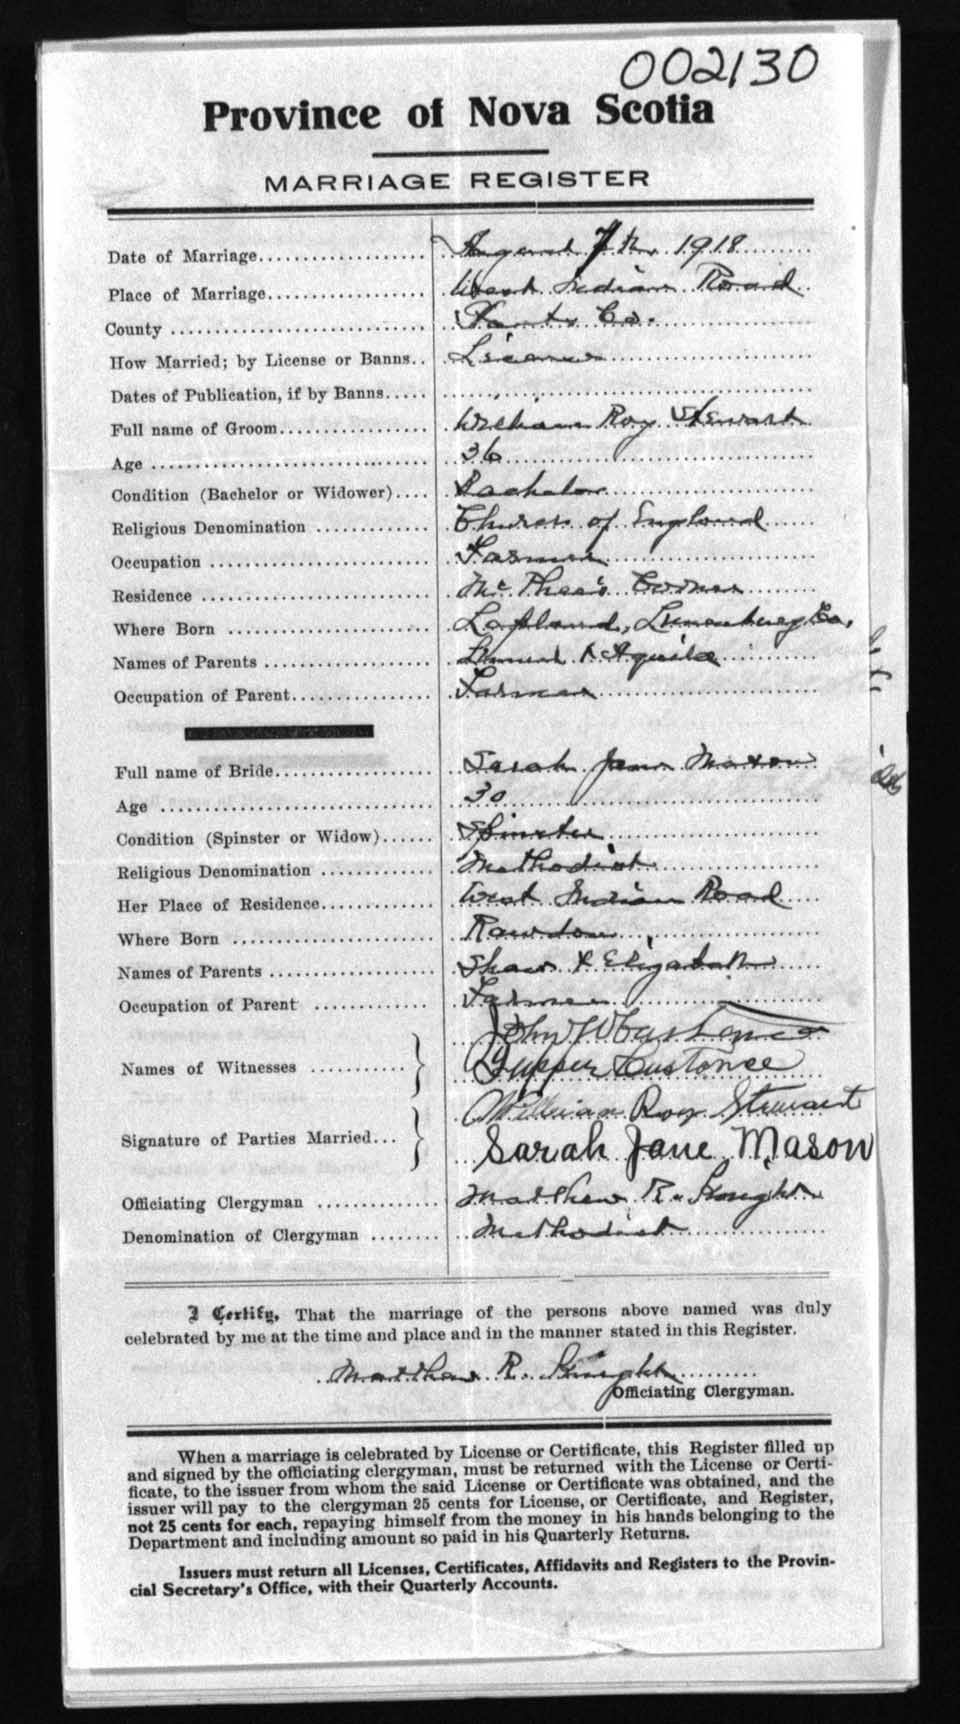 002130
Province of Nova Scotia
MARRIAGE REGISTER
Date of Marriage.................. August 7th 1918
Place of Marriage.................. West Indian Road
County .................. Hants Co.
How Married; by License or Banns.. License
Dates of Publication, if by Banns.....
Full name of Groom.................. William Roy Stewart
Age .................. 36
Condition (Bachelor or Widower).... Bachelor
Religious Denomination .................. Church of England
Occupation .................. Farmer
Residence .................. McPhee's Corner
Where Born .................. Lapland, Lunenburg Co.
Names of Parents .................. & Aquila
Occupation of Parent.................. Farmer
Full name of Bride.................. Sarah Jane Mason
Age .................. 30
Condition (Spinster or Widow)...... Spinster
Religious Denomination ............ Methodist
Her Place of Residence............ West Indian Road
Where Born .................. Rawdon
Names of Parents .................. Shaw & Elizabeth
Occupation of Parent ............ Farmer
John W Custance
Names of Witnesses ............ Tupper Custance
William Roy Stewart
Signature of Parties Married... Sarah Jane Mason
Officiating Clergyman ............ Matthew R. Knight
Denomination of Clergyman ........ Methodist
I Certify, That the marriage of the persons above named was duly
celebrated by me at the time and place and in the manner stated in this Register.
Matthew R. Knight
Officiating Clergyman.
When a marriage is celebrated by License or Certificate, this Register filled up
and signed by the officiating clergyman, must be returned with the License or Certi-
ficate, to the issuer from whom the said License or Certificate was obtained, and the
issuer will pay to the clergyman 25 cents for License, or Certificate, and Register,
not 25 cents for each, repaying himself from the money in his hands belonging to the
Department and including amount so paid in his Quarterly Returns.
Issuers must return all Licenses, Certificates, Affidavits and Registers to the Provin-
cial Secretary's Office, with their Quarterly Accounts.